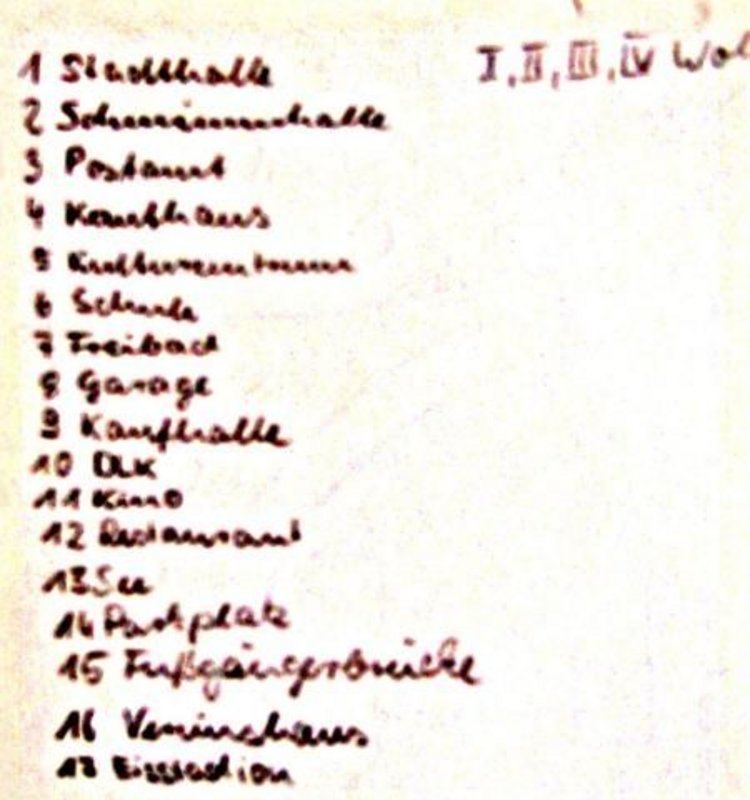 1 Stadthalle
I, II, III, IV Wo
2 Schwimmhalle
3 Postamt
4 Kaufhaus
5 Kulturzentrum
6 Schule
7 Freibad
8 Garage
9 Kaufhalle
10 DLK
11 Kino
12 Restaurant
13 See
14 Parkplatz
15 Fußgängerbrücke
16 Vereinshaus
17 Eisstadion